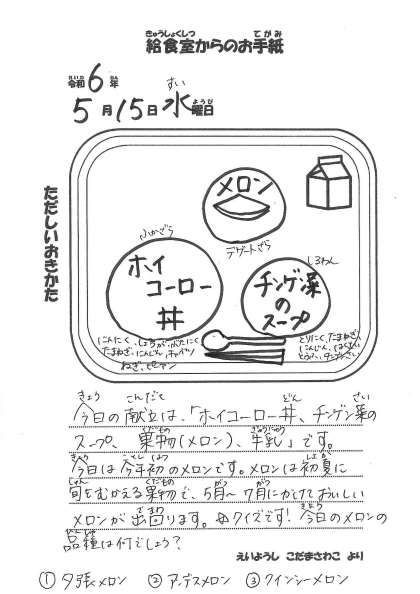 きゅうしょくしつ てがみ
給食室からのお手紙
れいわ ねん
令和6年
すい
5月15日水曜日
ようび
ただしいおきかた
メロン
デザートざら
ふかざら
ホイ
コーロー
丼
しろわん
チンゲン菜
の
スープ
にんにく、しょうが、ぶたにく
たまねぎ、にんじん、キャベツ
ねぎ、ピーマン
とりにく、たまねぎ、
にんじん、はくさい
とうふ、チンゲンさい
きょう こんだて どん さい
今日の献立は、「ホイコーロー丼、チンゲン菜の
くだもの ぎゅうにゅう
スープ、果物(メロン)、牛乳」です。
きょう ことし はつ しょか
今日は今年初のメロンです。メロンは初夏に
しゅん くだもの
旬をむかえる果物で、5月～7月にかけておいしい
でまわ きょう
メロンが出回ります。クイズです!今日のメロンの
ひんしゅ
品種は何でしょう?
えいようし こだまさわこ より
①夕張メロン ②アンデスメロン ③クインシーメロン